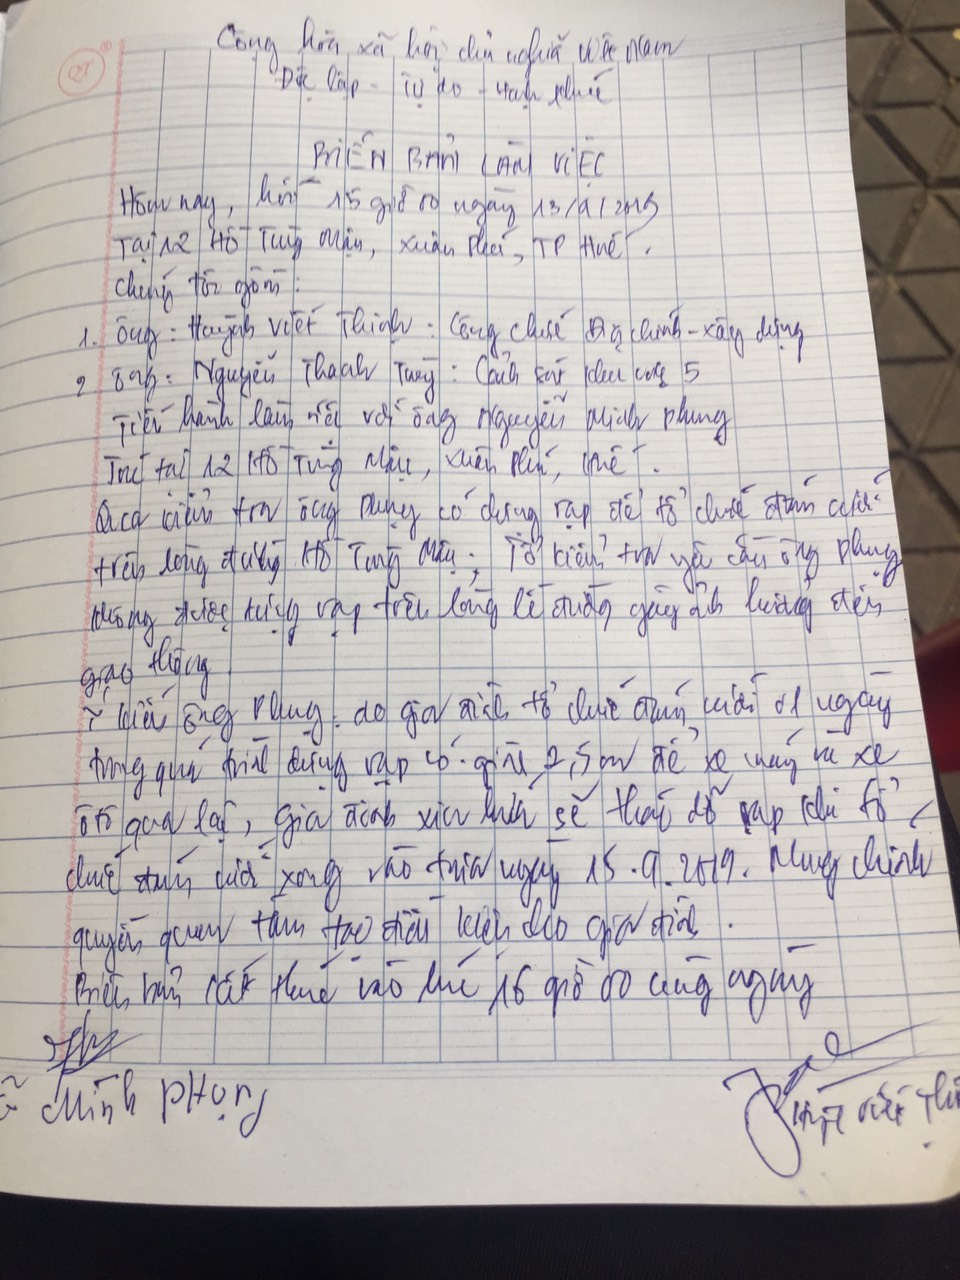 Cộng hòa xã hội chủ nghĩa Việt Nam
Độc lập - Tự do - Hạnh phúc
BIÊN BẢN LÀM VIỆC
Hôm nay, hồi 15 giờ 00 ngày 13/9/2019
Tại 12 Hồ Tùng Mậu, Xuân Phú, TP Huế.
Chúng tôi gồm:
1. Ông: Huỳnh Viết Thịnh: Công chức Địa chính - xây dựng
2. Ông: Nguyễn Thanh Tùng: Cảnh sát khu vực 5
Tiến hành làm việc với ông Nguyễn Minh Phụng
Trú tại 12 Hồ Tùng Mậu, Xuân Phú, Huế.
Qua kiểm tra ông Phụng có dựng rạp để tổ chức đám cưới
trên lòng đường Hồ Tùng Mậu; Tổ kiểm tra yêu cầu ông Phụng
không được dựng rạp trên lòng lề đường gây ảnh hưởng đến
giao thông.
Ý kiến ông Phụng: do gia đình tổ chức đám cưới 01 ngày
trong quá trình dựng rạp có 2,5m để xe máy và xe
ôtô qua lại, gia đình xin hứa sẽ tháo dỡ rạp khi tổ
chức đám cưới xong vào trưa ngày 15.9.2019. Mong chính
quyền quan tâm tạo điều kiện cho gia đình.
Biên bản kết thúc vào lúc 16 giờ 00 cùng ngày
Minh Phụng
Viết